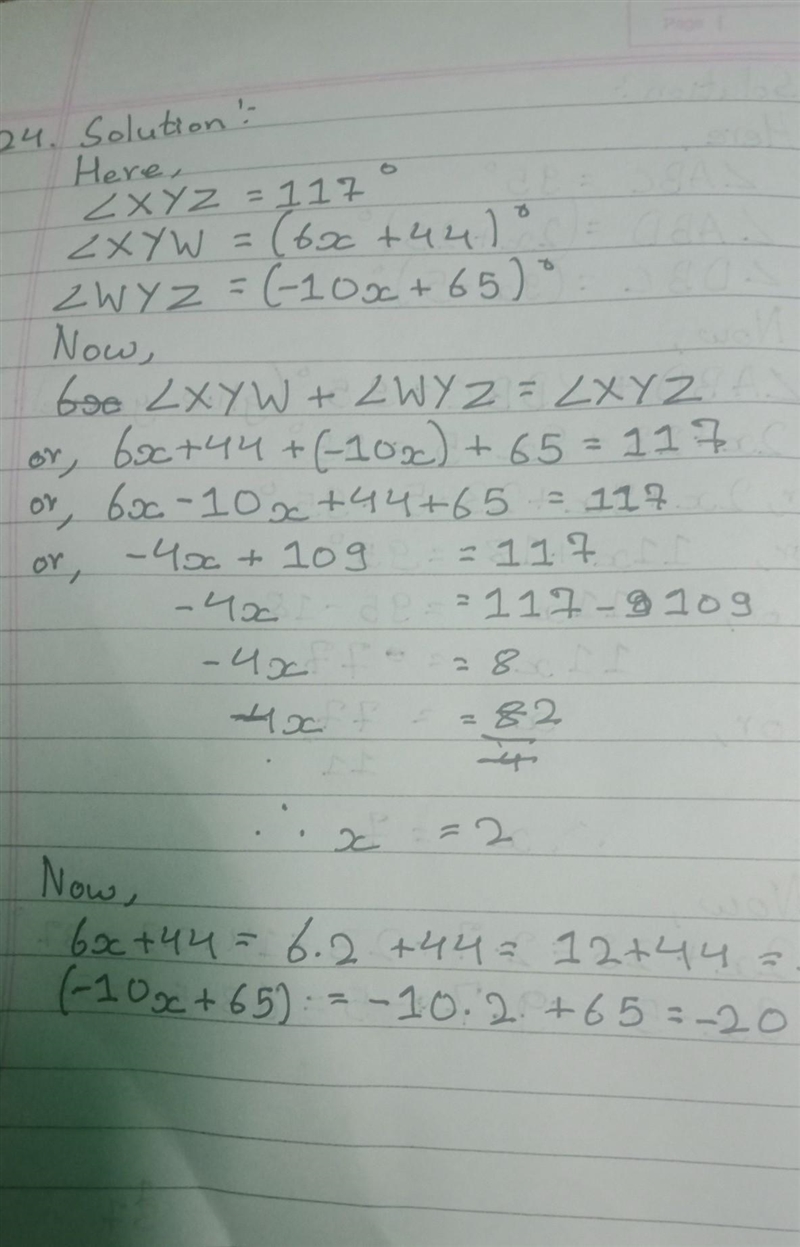 24. Solution:-
Here,
∠XYZ = 117°
∠XYW = (6x + 44)°
∠WYZ = (-10x + 65)°
Now,
∠XYW + ∠WYZ = ∠XYZ
or, 6x + 44 + (-10x) + 65 = 117
or, 6x - 10x + 44 + 65 = 117
or, -4x + 109 = 117
-4x = 117 - 109
-4x = 8
-4x = 8 2
-4
∴ x = 2
Now,
6x + 44 = 6.2 + 44 = 12 + 44 =
(-10x + 65) = -10.2 + 65 = -20